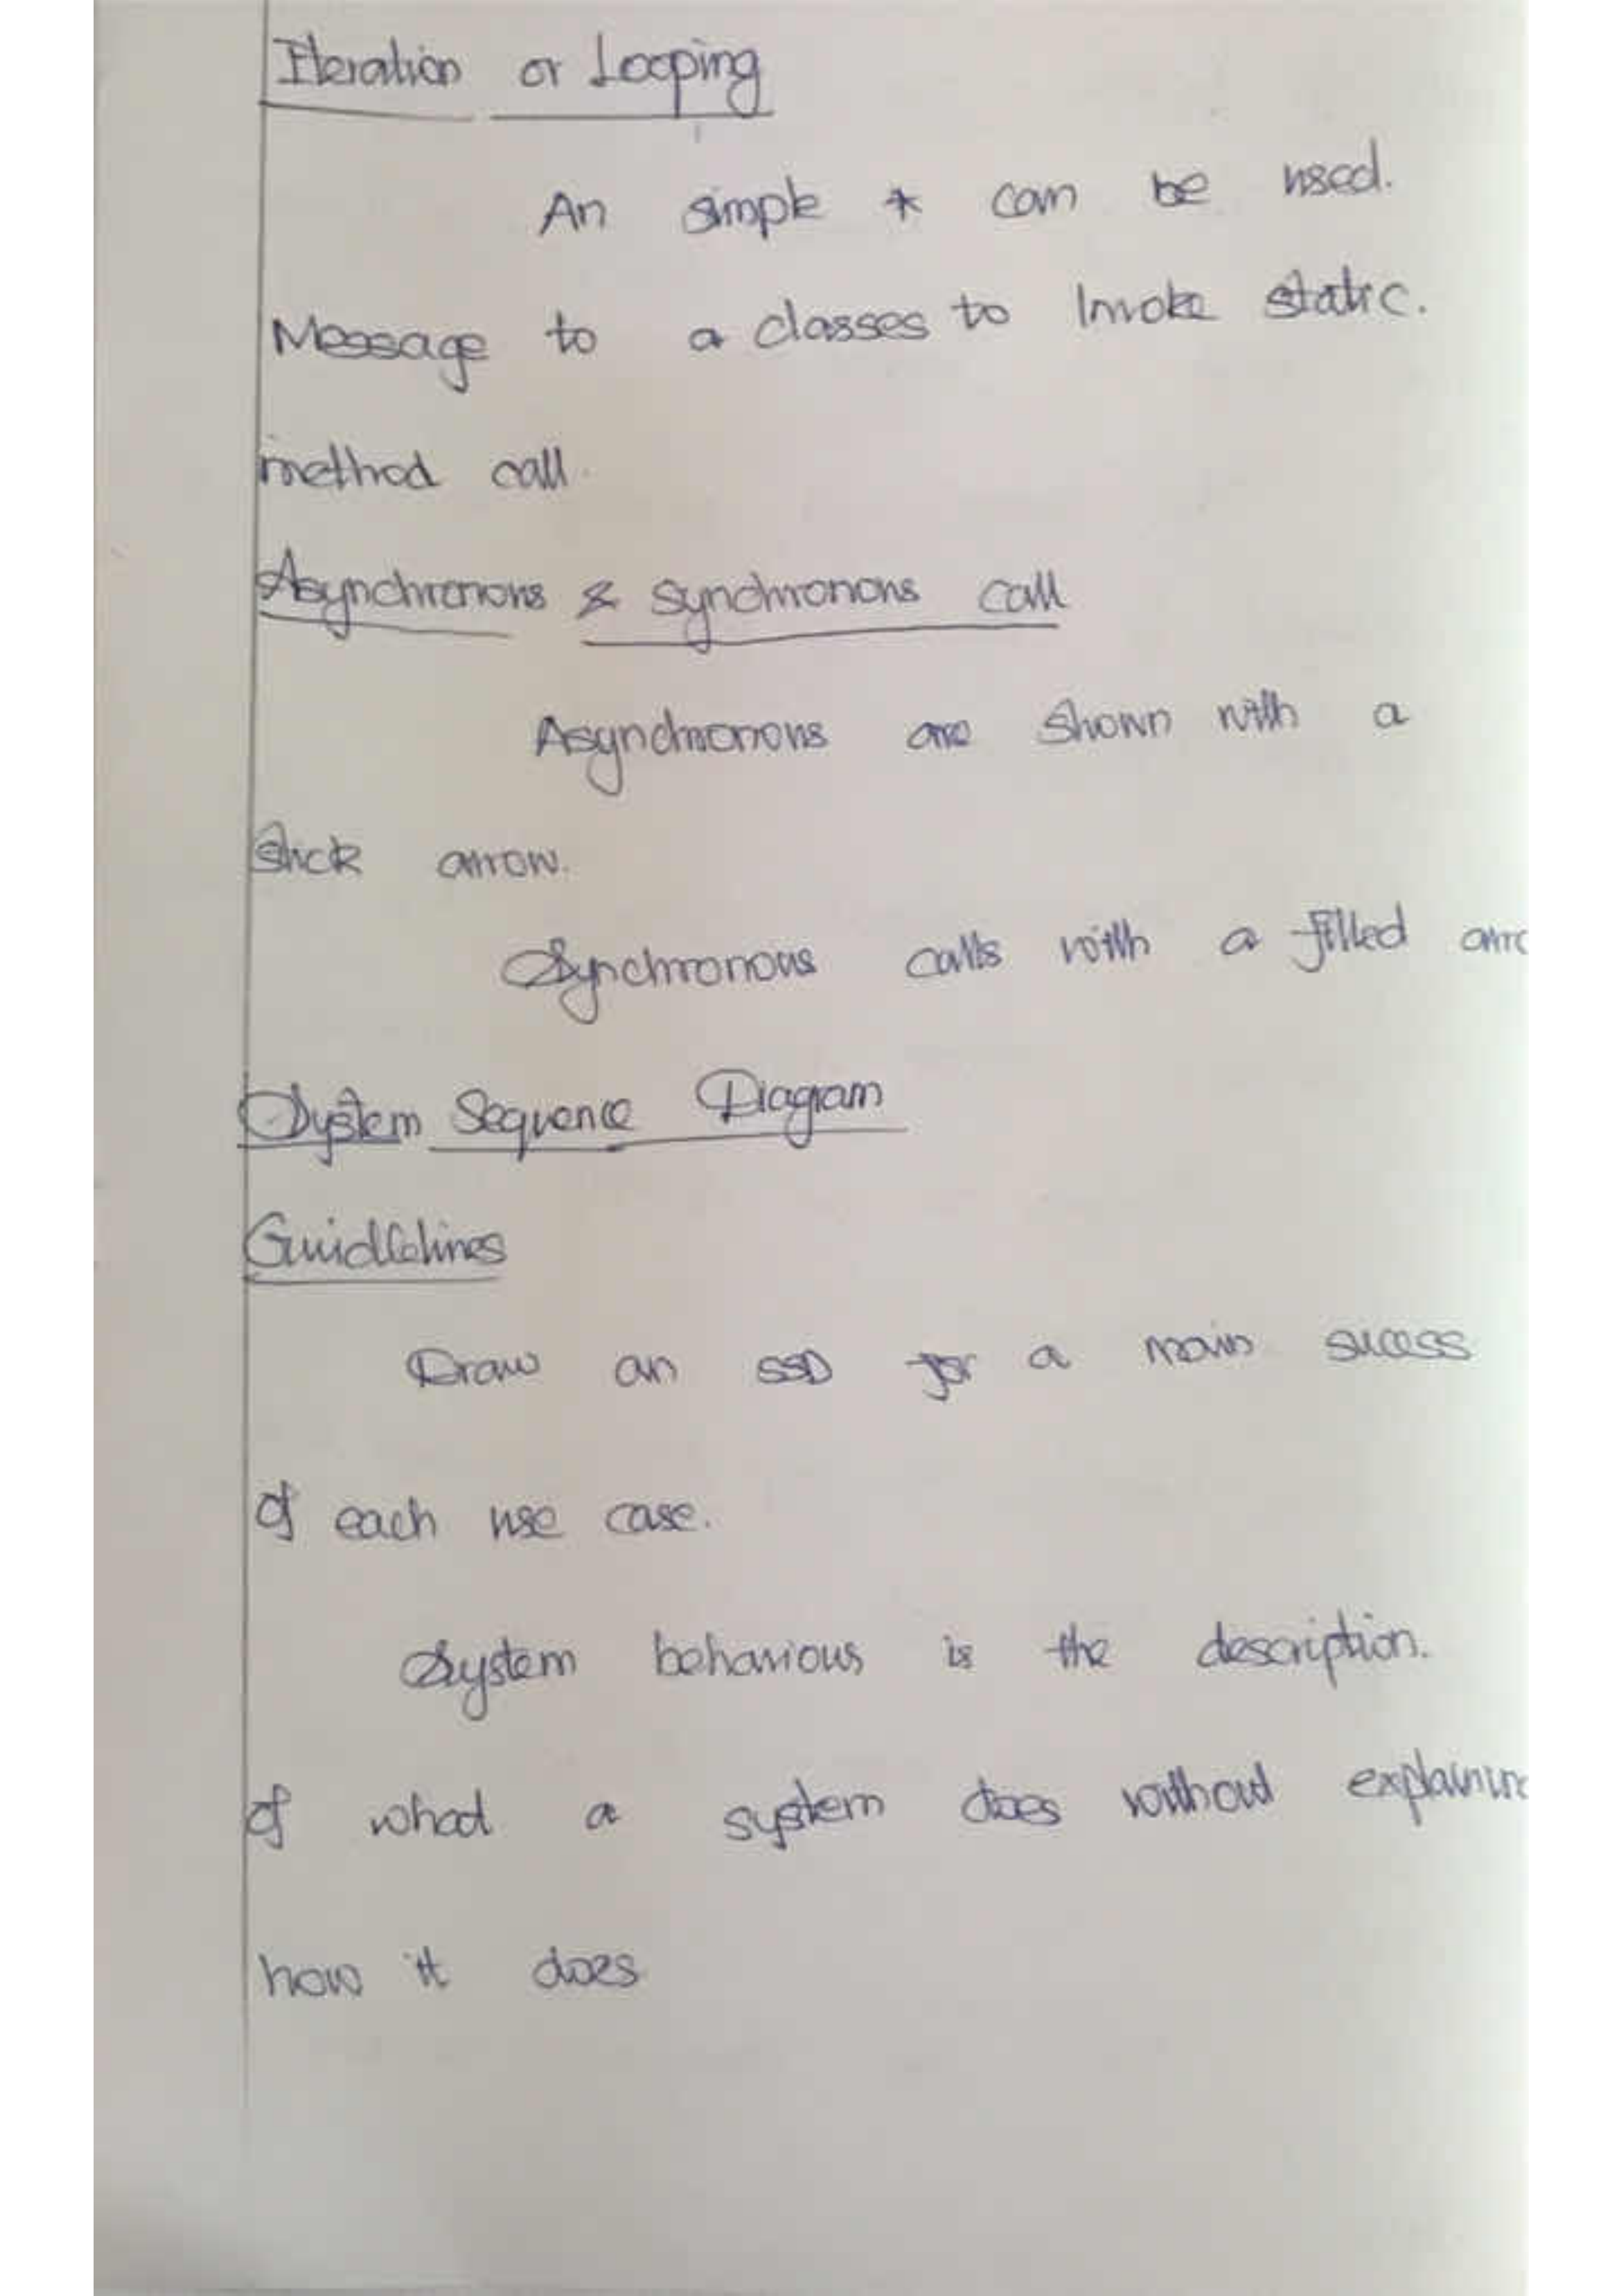 Iteration or Looping
An simple * can be used.
Message to a classes to Invoke static.
method call.
Asynchronous & synchronous call
Asynchronous are shown with a
stick arrow.
Synchronous calls with a filled arro
System Sequence Diagram
Guidlelines
Draw an SSD for a main sucess
of each use case.
System behavious is the description.
of what a system does without explaining
how it does